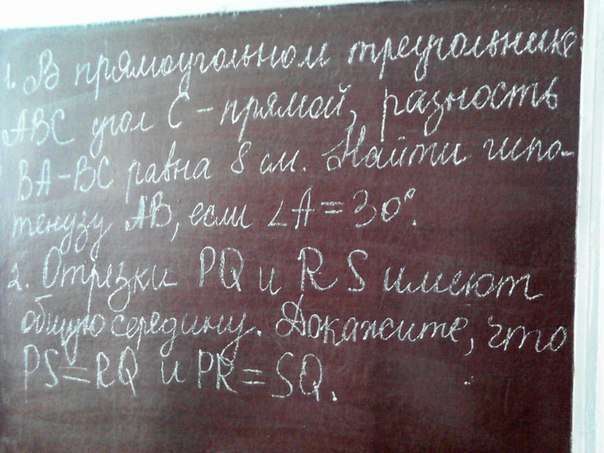 1. В прямоугольном треугольнике
ABC угол C - прямой, разность
BA-BC равна 8 см. Найти гипо-
тенузу AB, если ∠A=30°.
2. Отрезки PQ и RS имеют
общую середину. Докажите, что
PS=RQ и PR=SQ.